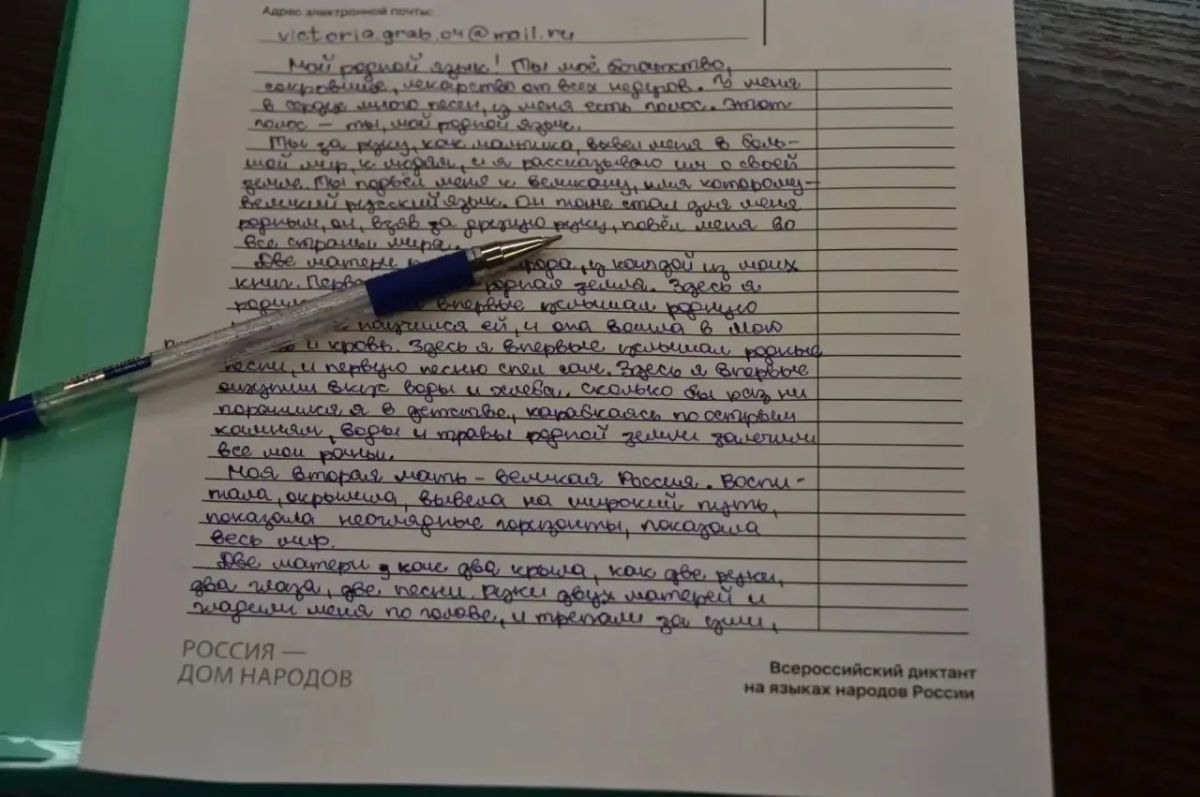 Адрес электронной почты:
victoria.grab.04@mail.ru
Мой родной язык! Ты моё богатство,
сокровище, лекарство от всех недугов. У меня
в сердце много песен, у меня есть голос. Этот
голос – ты, мой родной язык.
Ты за руку, как мальчика, вывел меня в боль-
шой мир, к людям, и я рассказываю им о своей
земле. Ты подвёл меня к великану, имя которому –
великий русский язык. Он тоже стал для меня
родным, он, взяв за другую руку, повёл меня во
все страны мира.
Две матери у каждой из моих
книг. родная земля. Здесь я
впервые услышал родную
научился ей, и она вошла в мою
и кровь. Здесь я впервые услышал родные
песни, и первую песню спел сам. Здесь я впервые
ощутил вкус воды и хлеба. Сколько бы раз ни
поранился я в детстве, карабкаясь по острым
камням, воды и травы родной земли залечили
все мои раны.
Моя вторая мать – великая Россия. Воспи-
тала, окрылила, вывела на широкий путь,
показала неоглядные горизонты, показала
весь мир.
Две матери, как два крыла, как две руки,
два глаза, две песни. Руки двух матерей и
гладили меня по голове, и трепали за уши,
РОССИЯ —
ДОМ НАРОДОВ
Всероссийский диктант
на языках народов России